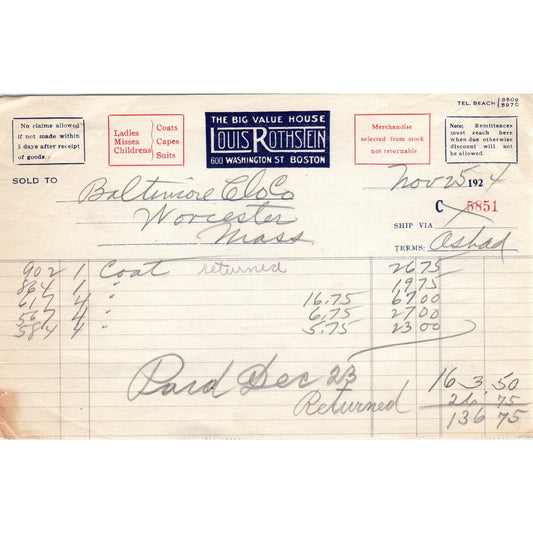 TEL. BEACH { 8509 8970
THE BIG VALUE HOUSE
LOUIS ROTHSTEIN
600 WASHINGTON ST. BOSTON
No claims allowed
if not made within
5 days after receipt
of goods.
Ladies
Misses
Childrens
Coats
Capes
Suits
Merchandise
selected from stock
not returnable
Note: Remittances
must reach here
when due otherwise
discount will not
be allowed.
SOLD TO Baltimore Clo Co
Worcester
Mass
Nov 25 1924
C 5851
SHIP VIA
TERMS:
902 1 Coat returned 26 75
864 1 " 19 75
617 4 " 16.75 67 00
567 4 " 6.75 27 00
584 4 " 5.75 23 00
Paid Dec 23
163 50
Returned 26 75
136 75